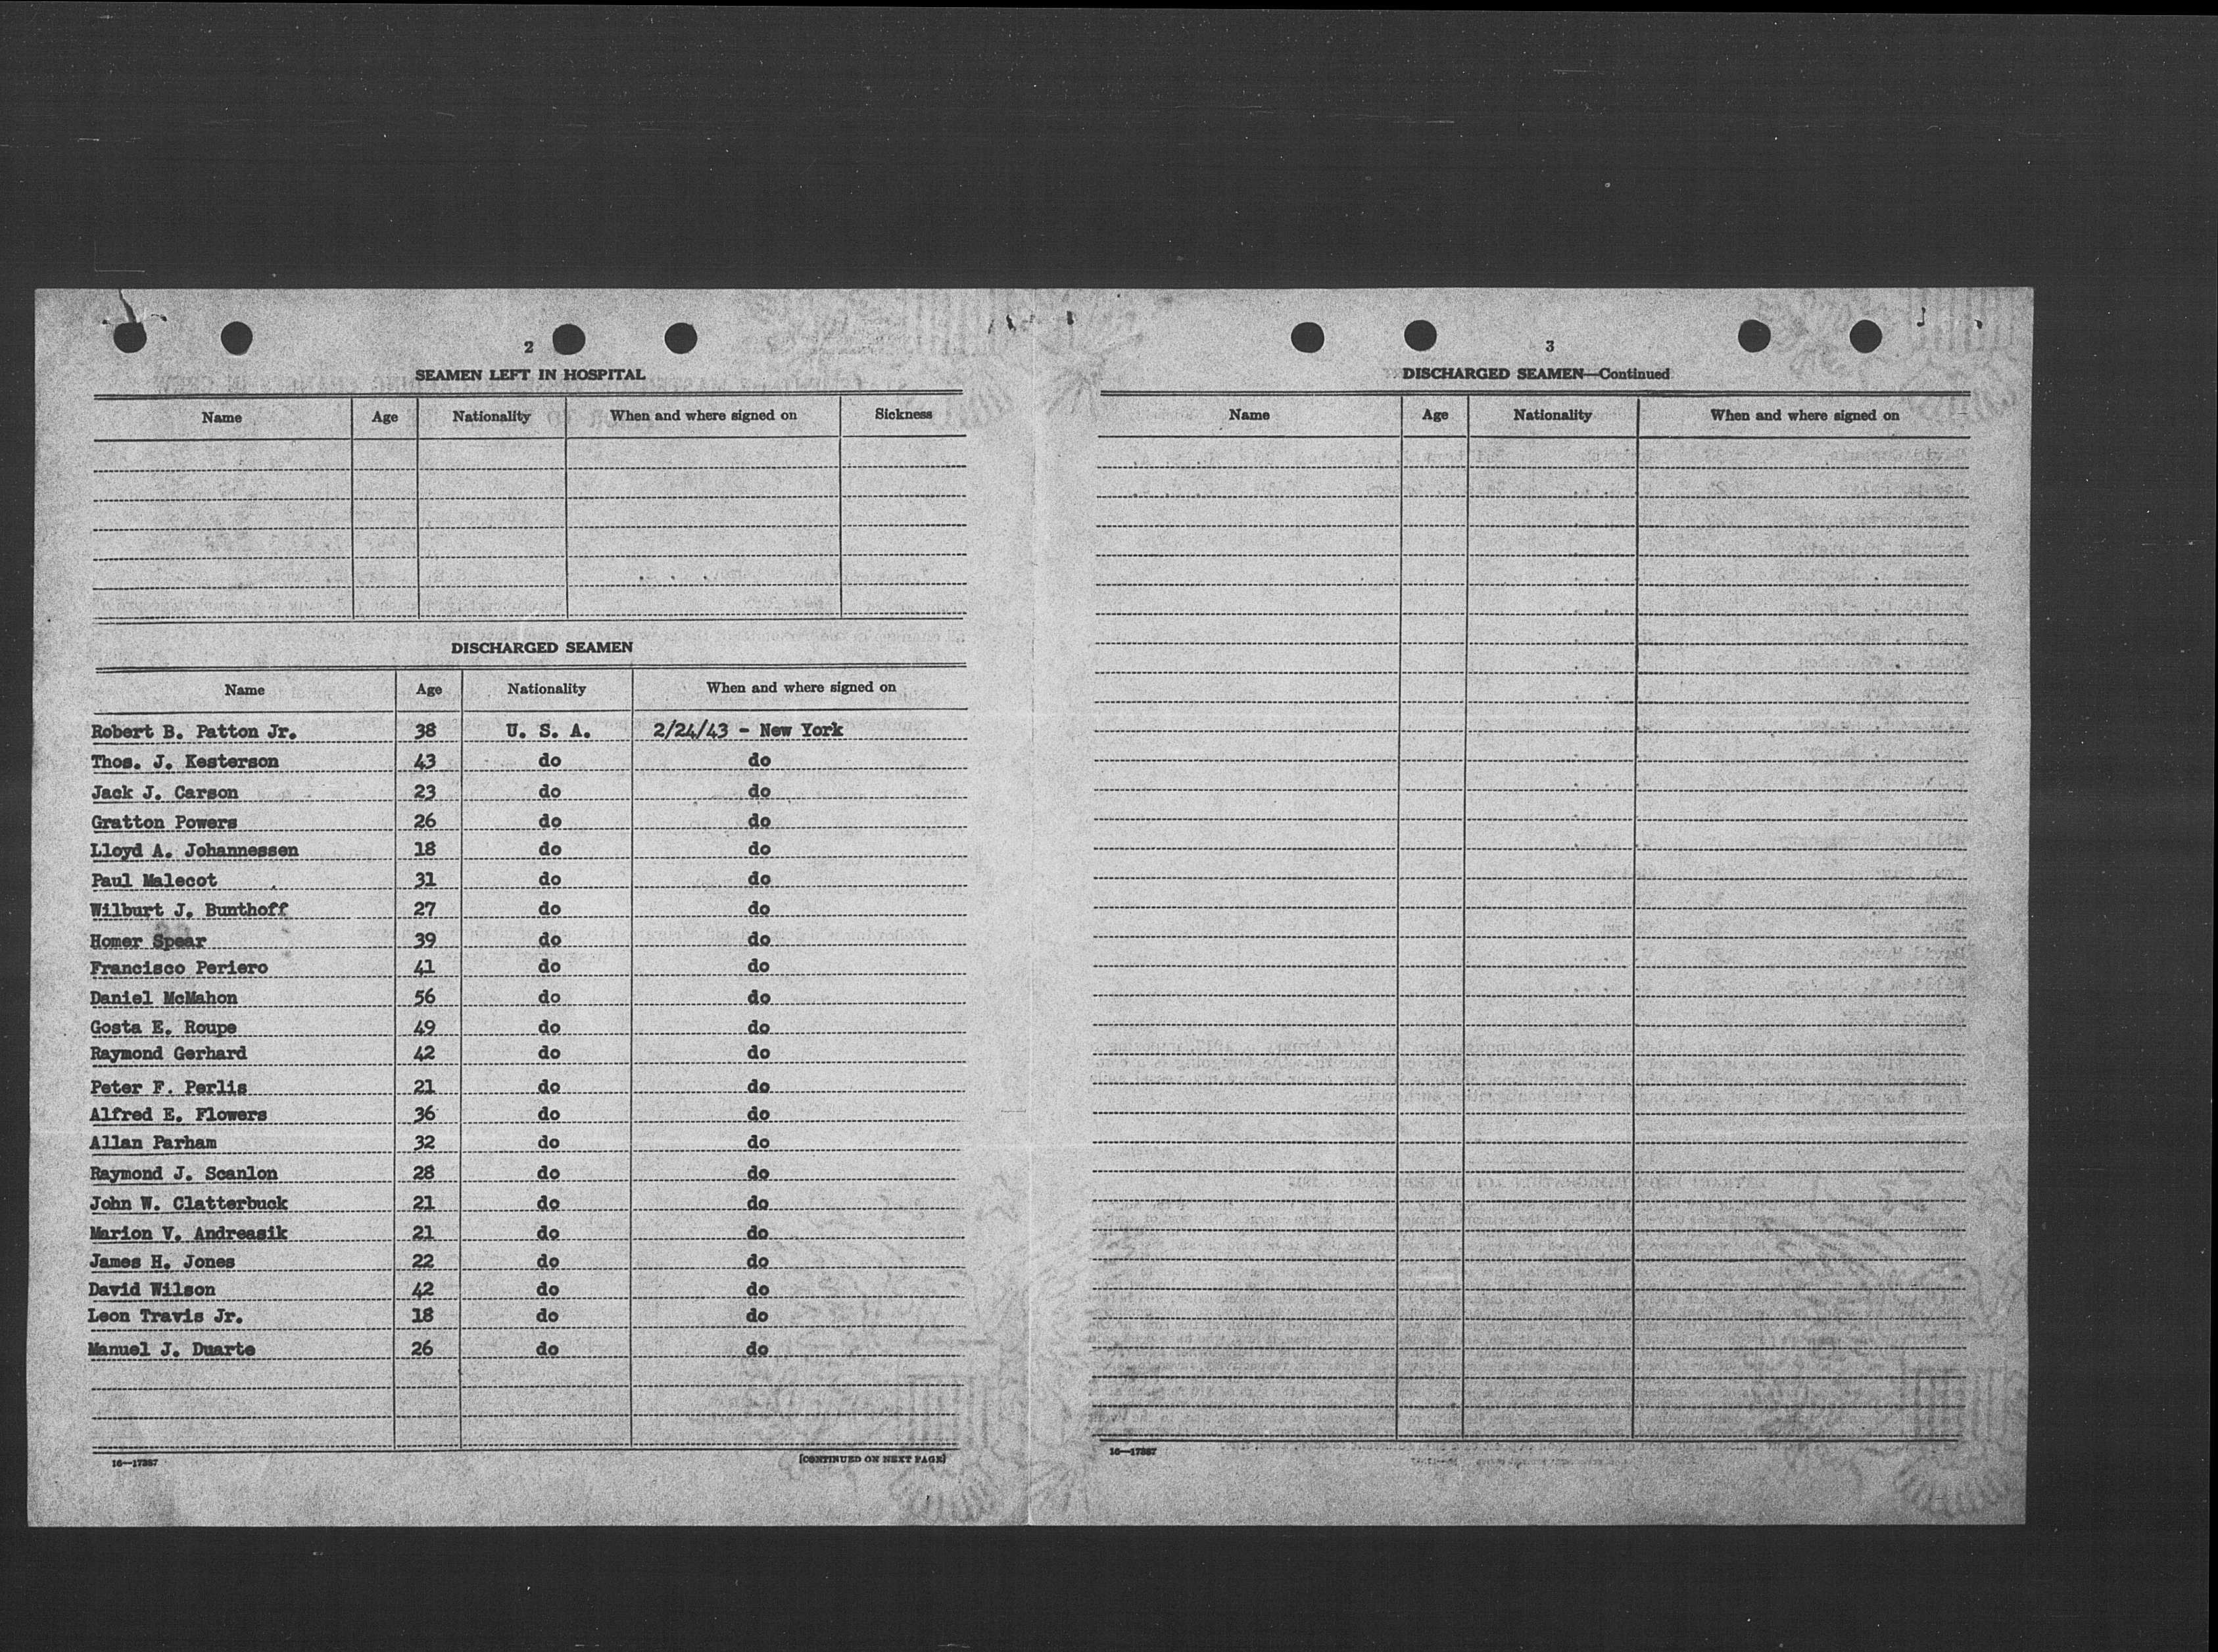 2
SEAMEN LEFT IN HOSPITAL
Name Age Nationality When and where signed on Sickness
DISCHARGED SEAMEN
Name Age Nationality When and where signed on
Robert B. Patton Jr. 38 U. S. A. 2/24/43 - New York
Thos. J. Kesterson 43 do do
Jack J. Carson 23 do do
Gratton Powers 26 do do
Lloyd A. Johannessen 18 do do
Paul Malecot 31 do do
Wilburt J. Bunthoff 27 do do
Homer Spear 39 do do
Francisco Periero 41 do do
Daniel McMahon 56 do do
Gosta E. Roupe 49 do do
Raymond Gerhard 42 do do
Peter F. Perlis 21 do do
Alfred E. Flowers 36 do do
Allan Parham 32 do do
Raymond J. Scanlon 28 do do
John W. Clatterbuck 21 do do
Marion V. Andreasik 21 do do
James H. Jones 22 do do
David Wilson 42 do do
Leon Travis Jr. 18 do do
Manuel J. Duarte 26 do do
16—17387
[CONTINUED ON NEXT PAGE]
3
DISCHARGED SEAMEN—Continued
Name Age Nationality When and where signed on
16—17387